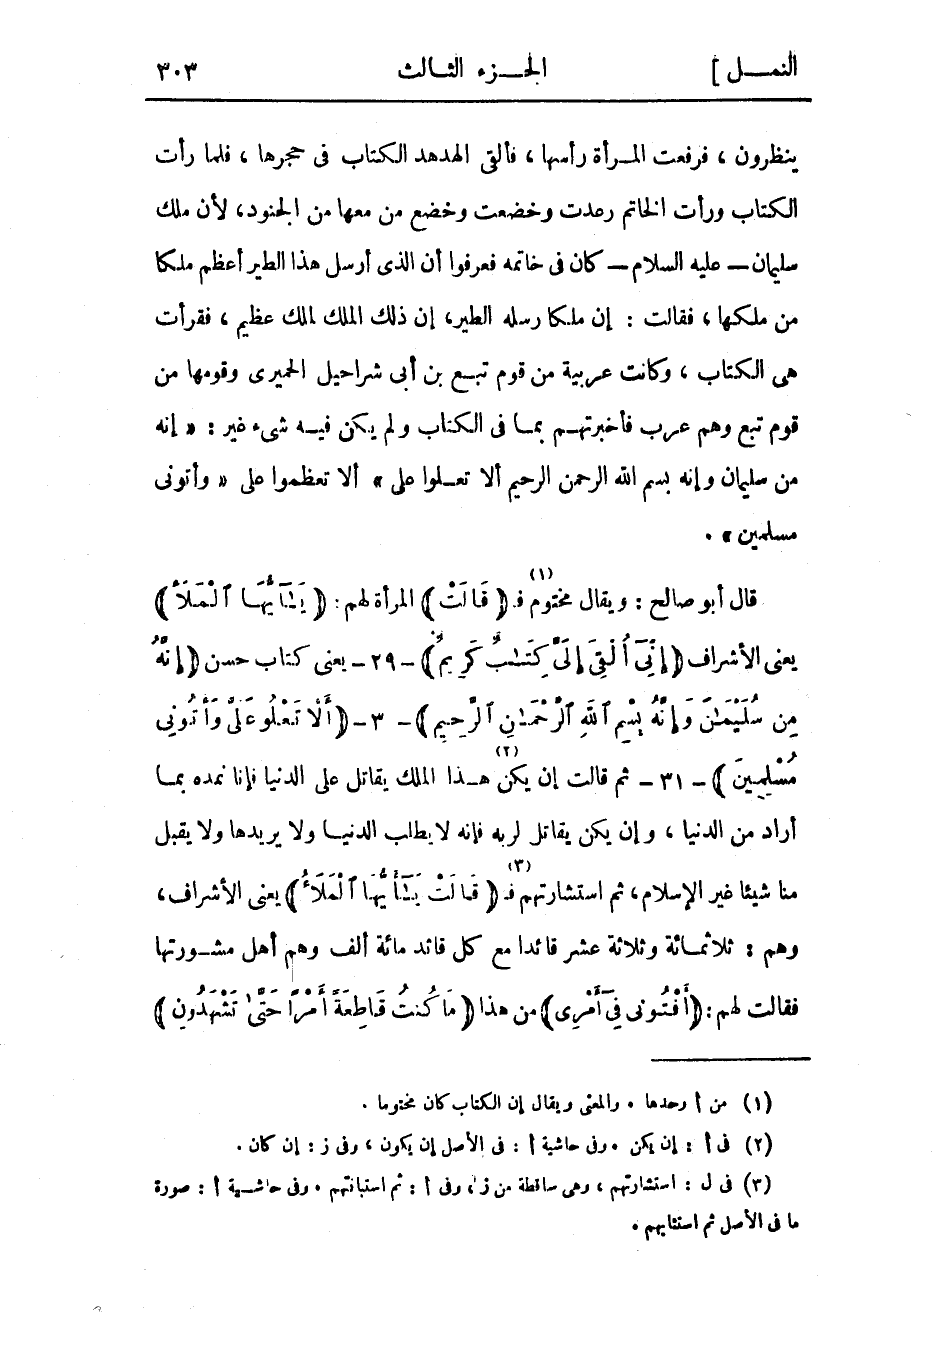 النمل ] الجزء الثالث ٣٠٣
ينظرون ، فرفعت المرأة رأسها ، فألقى الهدهد الكتاب فى حجرها ، فلما رأت
الكتاب ورأت الخاتم رعدت وخضعت وخضع من معها من الجنود، لأن ملك
سليمان — عليه السلام — كان فى خاتمه فعرفوا أن الذى أرسل هذا الطير أعظم ملكا
من ملكها ، فقالت : إن ملكا رسله الطير، إن ذلك الملك لملك عظيم ، فقرأت
هى الكتاب ، وكانت عربية من قوم تبع بن أبى شراحيل الحميرى وقومها من
قوم تبع وهم عرب فأخبرتهم بما فى الكتاب ولم يكن فيه شىء غير : « إنه
من سليمان وإنه بسم الله الرحمن الرحيم ألا تعلوا على » ألا تعظموا على « وأتونى
مسلمين » .
قال أبو صالح : ويقال مختوم (١) فـ ﴿ قَالَتْ ﴾ المرأة لهم : ﴿ يَـٰٓأَيُّهَا ٱلْمَلَأُ ﴾
يعنى الأشراف ﴿ إِنِّىٓ أُلْقِىَ إِلَىَّ كِتَـٰبٌ كَرِيمٌ ﴾ - ٢٩ - يعنى كتاب حسن ﴿ إِنَّهُ
مِن سُلَيْمَـٰنَ وَإِنَّهُ بِسْمِ ٱللَّهِ ٱلرَّحْمَـٰنِ ٱلرَّحِيمِ ﴾ - ٣٠ - ﴿ أَلَّا تَعْلُوا عَلَىَّ وَأْتُونِى
مُسْلِمِينَ ﴾ - ٣١ - ثم قالت إن يكن (٢) هذا الملك يقاتل على الدنيا فإنا نمده بما
أراد من الدنيا ، وإن يكن يقاتل لربه فإنه لا يطلب الدنيا ولا يريدها ولا يقبل
منا شيئا غير الإسلام، ثم استشارتهم (٣) فـ ﴿ قَالَتْ يَـٰٓأَيُّهَا ٱلْمَلَأُ ﴾ يعنى الأشراف ،
وهم : ثلاثمائة وثلاثة عشر قائدا مع كل قائد مائة ألف وهم أهل مشورتها
فقالت لهم : ﴿ أَفْتُونِى فِىٓ أَمْرِى ﴾ من هذا ﴿ مَا كُنتُ قَاطِعَةً أَمْرًا حَتَّىٰ تَشْهَدُونِ ﴾
(١) من أ وحدها . والمعنى ويقال إن الكتاب كان مختوما .
(٢) فى أ : إن يكن . وفى حاشية أ : فى الأصل إن يكون ، وفى ز : إن كان .
(٣) فى ل : استشارتهم ، وهى ساقطة من ز ، وفى أ : ثم استبانتهم . وفى حاشية أ : صورة
ما فى الأصل ثم استثابهم .